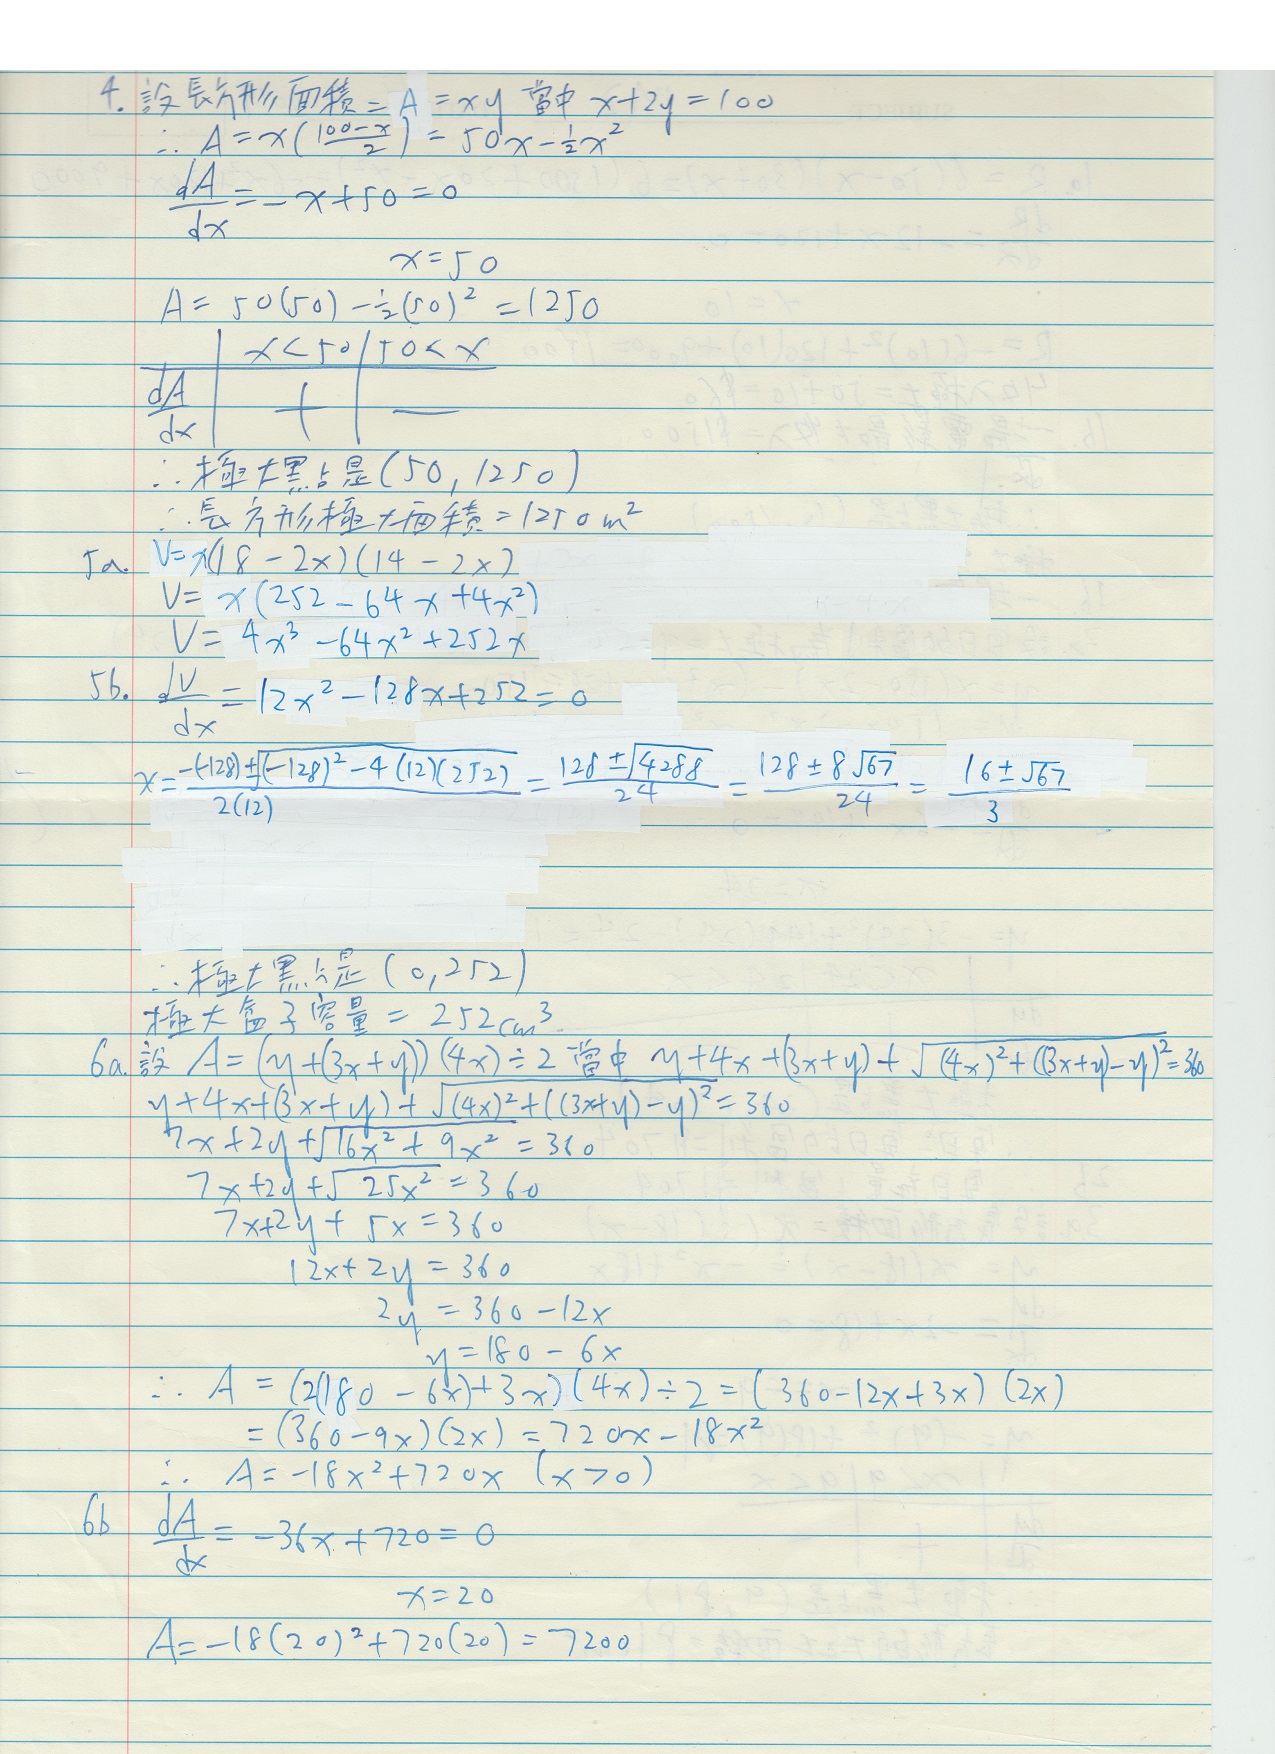 4. 設長方形面積=A=xy 當中 x+2y=100
∴ A=x(\frac{100-x}{2}) = 50x-½x²
\frac{dA}{dx}=-x+50=0
x=50
A= 50(50)-½(50)²=1250
x<50 | 50<x
\frac{dA}{dx} | + | —
∴極大點是(50,1250)
∴長方形極大面積=1250m²
5a. V=x(18-2x)(14-2x)
V= x(252-64x+4x²)
V= 4x³-64x²+252x
5b. \frac{dV}{dx}=12x²-128x+252=0
x=\frac{-(-128)±√((-128)²-4(12)(252))}{2(12)}=\frac{128±√4288}{24}=\frac{128±8√67}{24}=\frac{16±√67}{3}
∴極大點是(0,252)
極大盒子容量=252cm³
6a. 設 A=(y+(3x+y))(4x)÷2 當中 y+4x+(3x+y)+√((4x)²+((3x+y)-y)²)=360
y+4x+(3x+y)+√((4x)²+((3x+y)-y)²)=360
7x+2y+√(16x²+9x²)=360
7x+2y+√(25x²)=360
7x+2y+5x=360
12x+2y=360
2y=360-12x
y=180-6x
∴ A=(2(180-6x)+3x)(4x)÷2=(360-12x+3x)(2x)
=(360-9x)(2x)=720x-18x²
∴ A=-18x²+720x (x>0)
6b \frac{dA}{dx}=-36x+720=0
x=20
A=-18(20)²+720(20)=7200